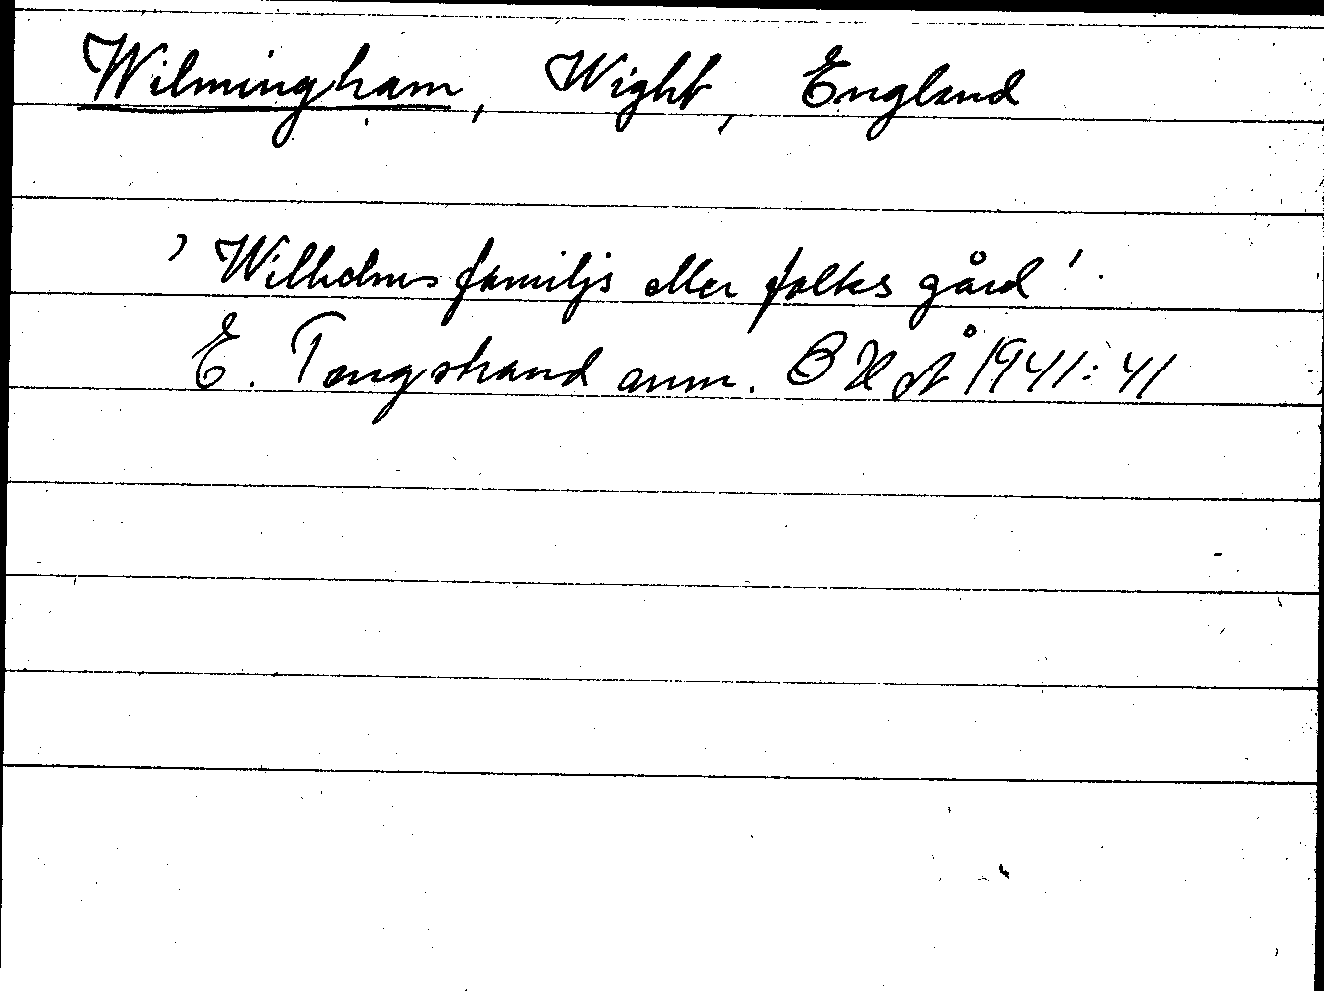 Wilmingham, Wight, England
'Wilhelms familjs eller folks gård'.
E. Tengstrand anm. BHÅ 1941:41